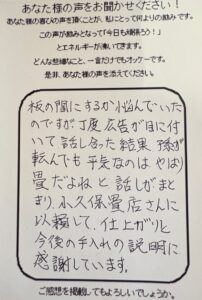 あなた様の声をお聞かせください！
あなた様の喜びの声を頂くことが、私にとって何よりの励みです。
この声が励みとなって「今日も頑張ろう！」
とエネルギーが沸いてきます。
どんな些細なこと、一言だけでもオッケーです。
是非、あなた様の声を添えてください。
板の間にするか悩んでいた
のですが丁度広告が目に付
いて話し合た結果 孫が
転んでも平気なのはやはり
畳だよねと話しがまと
まり、小久保畳店さんに
依頼して、仕上がりと
今後の手入れの説明に
感謝しています。
ご感想を掲載してもよろしいでしょうか。